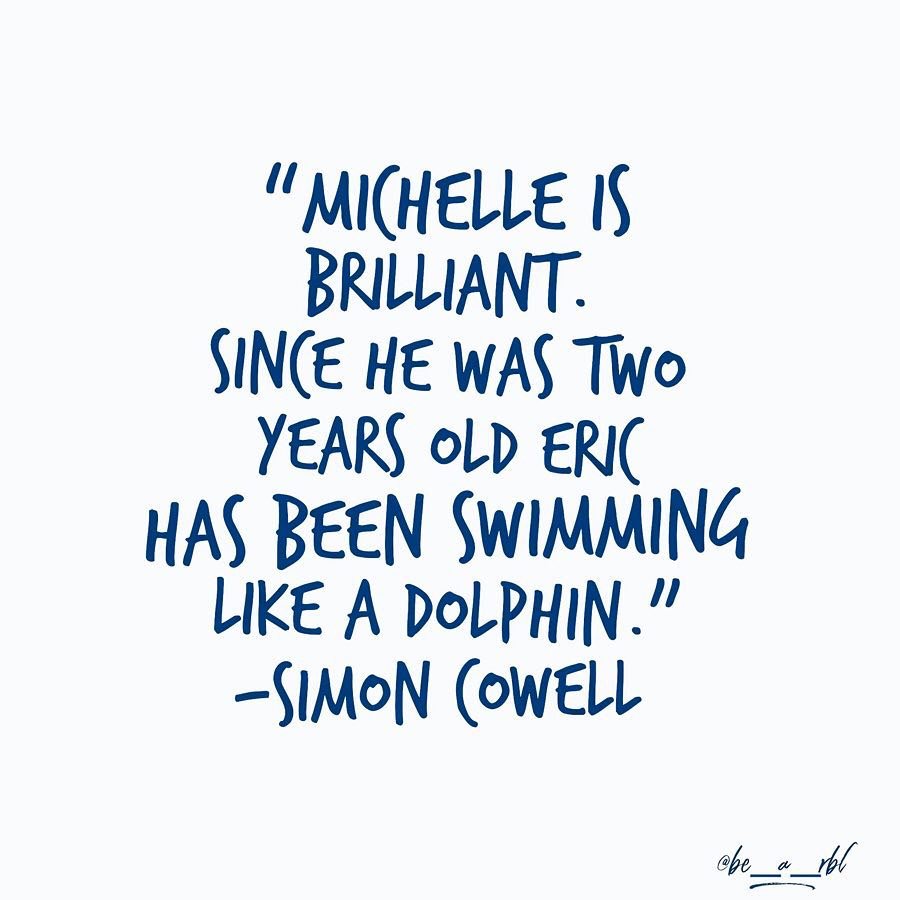 “MICHELLE IS
BRILLIANT.
SINCE HE WAS TWO
YEARS OLD ERIC
HAS BEEN SWIMMING
LIKE A DOLPHIN.”
-SIMON COWELL
@be__a__rbl